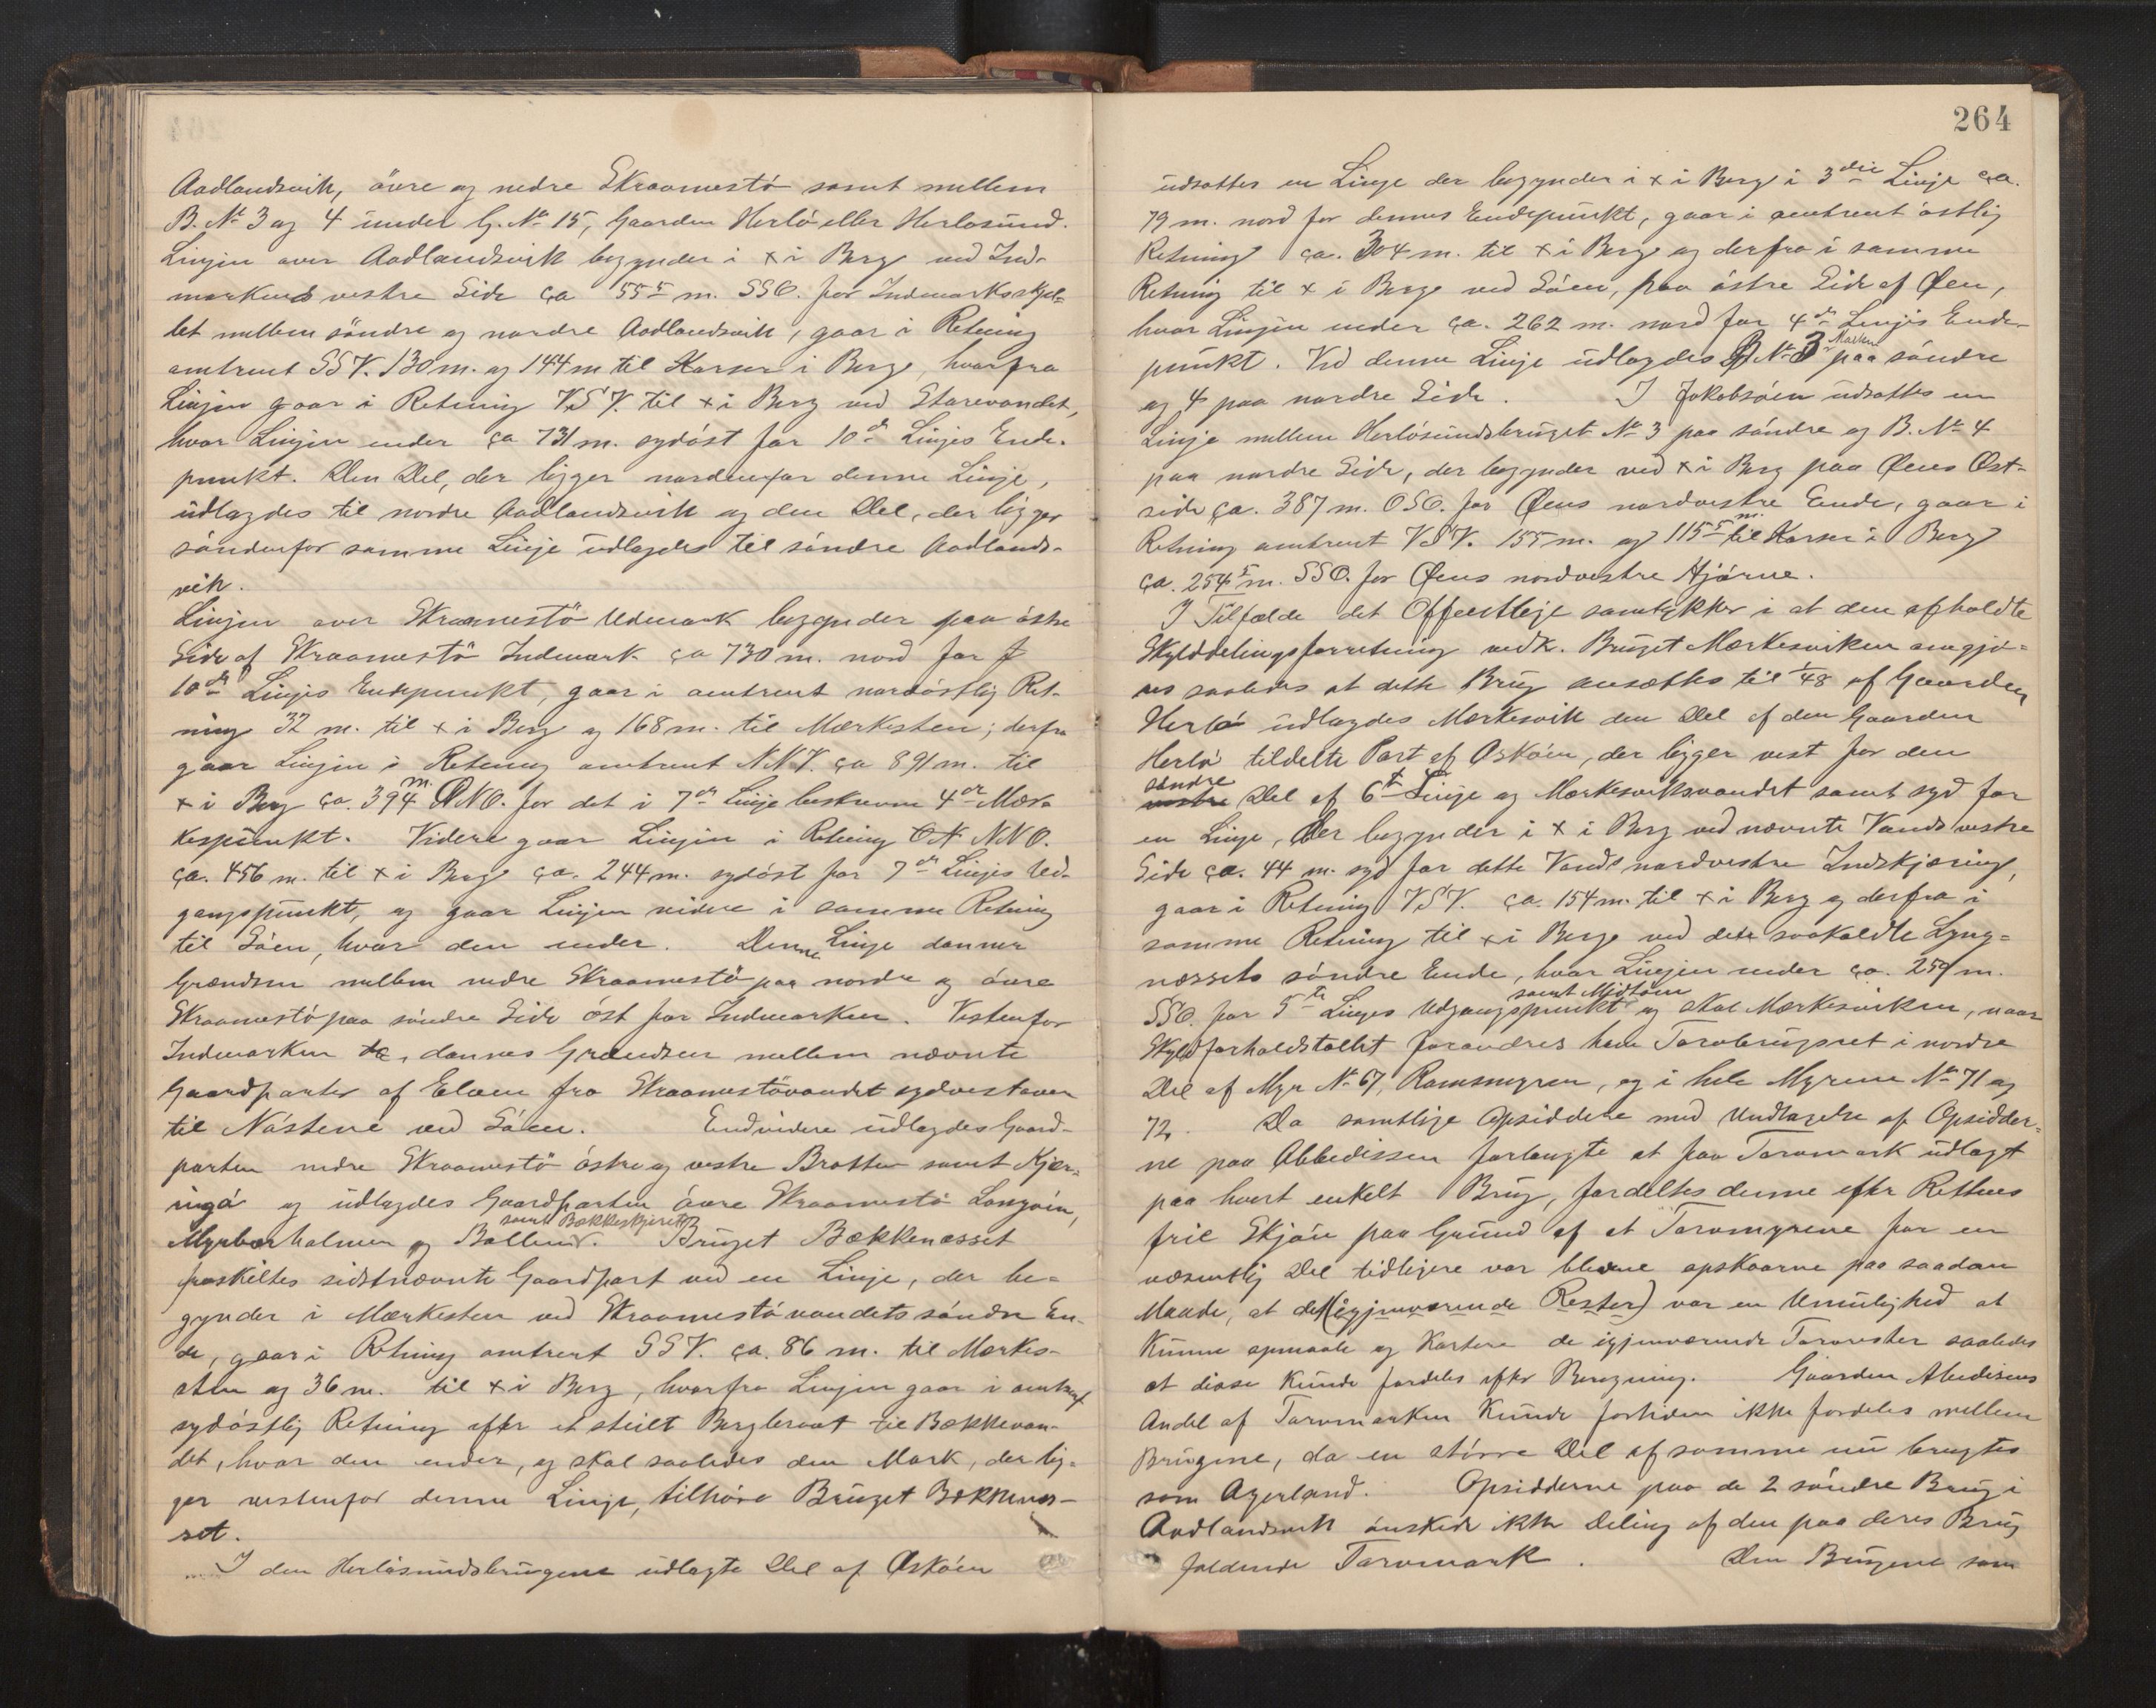 Aadlandsvik, övre og nedre Skraamestö samt mellem
B. No 3 og 4 under G. No 15, Gaarden Herlö eller Herlosund.
Linjen over Aadlandsvik begynder i x i Berg ved Ind-
markens vestre Side ca 55⁵ m. SSO. for Indmarksskjel-
let mellem söndre og nordre Aadlandsvik, gaar i Retning
omtrent SSV. 130 m. og 144 m til Korser i Berg, hvorfra
Linjen gaar i Retning VSV. til x i Berg ved Storevandet,
hvor Linjen ender ca 731 m. sydöst for 10de Linjes Ende-
punkt. Den Del, der ligger nordenfor denne Linje,
udlagdes til nordre Aadlandsvik og den Del, der ligger
söndenfor samme Linje udlagdes til söndre Aadlands-
vik.
Linjen over Skraamestö Udmark begynder paa östre
Side af Skraamestö Indmark ca 730 m. nord for
10de Linjes Endepunkt, gaar i omtrent nordöstlig Ret-
ning 32 m. til x i Berg og 168 m. til Mærkesten; derfra
gaar Linjen i Retning omtrent NNV. ca 891 m. til
x i Berg ca. 394 m. ONO. for det i 7de Linje beskrevne 4de Mær-
kespunkt. Videre gaar Linjen i Retning NNO.
ca. 456 m. til x i Berg ca. 244 m. sydöst for 7de Linjes Ud-
gangspunkt, og gaar Linjen videre i samme Retning
til Söen, hvor den ender. Denne Linje danner
Grændsen mellem nedre Skraamestö paa nordre og övre
Skraamestö paa söndre Side öst for Indmarken. Vestenfor
Indmarken, dannes Grændsen mellem nævnte
Gaardparter af Elven fra Skraamestövandet sydvestover
til Nöstene ved Söen. Endvidere udlagdes Gaard-
parten nedre Skraamestö östre og vestre Bratten samt Kjer-
ingö og udlagdes Gaardparten övre Skraamestö Langöen,
Myrborholmen og Bollene samt Bækkeskjeret. Bruget Bækkenesset
fraskiltes sidstnævnte Gaardpart ved en Linje, der be-
gynder i Mærkesten ved Skraamestövandets söndre En-
de, gaar i Retning omtrent SSV. ca. 86 m. til Mærkes-
sten og 36 m. til x i Berg, hvorfra Linjen gaar i omtrent
sydöstlig Retning efter et steilt Bergbrant til Bækkevan-
det, hvor den ender, og skal saaledes den Mark, der lig-
ger vestenfor denne Linje, tilhöre Bruget Bækkenes-
set.
I den Herlösundsbrugene udlagte Del af Osköen
264
udsattes en Linje der begynder i x i Berg i 3die Linje ca.
79 m. nord for dennes Endepunkt, gaar i omtrent östlig
Retning ca. 304 m. til x i Berg og derfra i samme
Retning til x i Berge ved Söen, paa östre Side af Øen,
hvor Linjen ender ca. 262 m. nord for 4de Linjes Ende-
punkt. Ved denne Linje udlagdes B No 3 Marken paa söndre
og 4 paa nordre Side. I Jakobsöen udsattes en
Linje mellem Herlösundsbruget No 3 paa söndre og B. No 4
paa nordre Side, der begynder ved x i Berg paa Øens Øst-
side ca. 387 m. OSO. for Øens nordvestre Ende, gaar i
Retning omtrent VSV. 155 m. og 115⁵ m. til Korser i Berg
ca. 254⁵ m. SSO. for Øens nordvestre Hjörne.
I Tilfælde det Offentlige samtykker i at den afholdte
Skylddelingsforretning vedk. Bruget Mærkesviken omgjö-
res saaledes at dette Brug ansættes til 1/48 af Gaarden
Herlö udlagdes Mærkesvik den Del af den Gaarden
Herlö tildelte Part af Osköen, der ligger vest for den
söndre Del af 6te Linje og Mærkesviksvandet samt syd for
en Linje, der begynder i x i Berg ved nævnte Vands vestre
Side ca. 44 m. syd for dette Vands nordvestre Indskjæring,
gaar i Retning VSV. ca. 154 m. til x i Berg og derfra i
samme Retning til x i Berge ved det saakaldte Lyng-
næssets söndre Ende, hvor Linjen ender ca. 259 m.
SSO. for 5te Linjes Udgangspunkt samt Midtöen og skal Mærkesviken, naar
Skyldforholdstallet forandres have Torvbrugsret i nordre
Del af Myr No 67, Ramsmyren, og i hele Myrene No 71 og
72. Da samtlige Opsiddere med Undtagelse af Opsidder-
ne paa Abbedissen forlangte at faa Torvmark udlagt
paa hvert enkelt Brug, fordeltes denne efter Rettens
frie Skjön paa Grund af at Torvmyrene for en
væsentlig Del tidligere var blevne opskaarne paa saadan
Maade, at det (igjenværende Rester) var en Umulighed at
kunne opmaale og kartere de igjenværende Torvrester saaledes
at disse kunde fordeles efter Beregning. Gaarden Abedisens
Andel af Torvmarken kunde fortiden ikke fordeles mellem
Brugene, da en större Del af samme nu brugtes
som Agerland. Opsidderne paa de 2 söndre Brug i
Aadlandsvik önskede ikke Deling af den paa deres Brug
faldende Torvmark. Den Brugene som